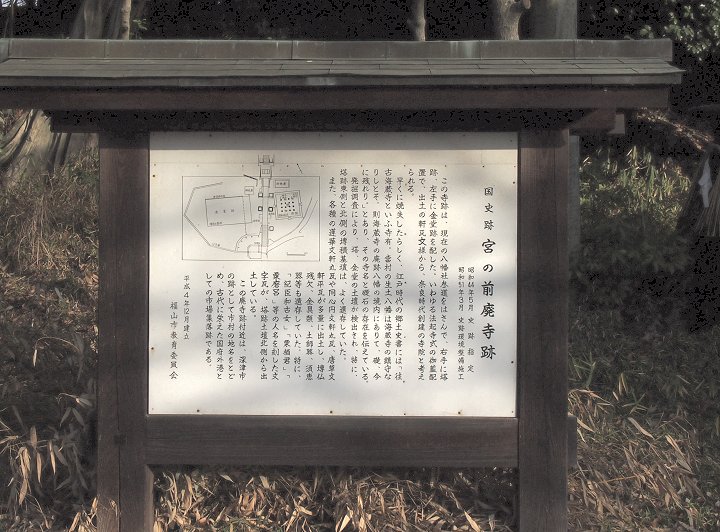 国史跡 宮の前廃寺跡
昭和44年5月 史跡指定
昭和51年3月 史跡環境整備施工
この寺跡は、現在の八幡社参道をはさんで、右手に塔
跡、左手に金堂跡を配した、いわゆる法起寺式の伽藍配
置で、出土の軒瓦文様から、奈良時代創建の寺院と考え
られる。
早くに焼失したらしく、江戸時代の郷土史書には「往
古海蔵寺といふ寺有、当村の生土八幡は海蔵寺の鎮守な
りしとぞ、則海蔵寺の廃跡八幡の境内にありて、礎、今
に残れり」とあり、その寺名と礎石の存在を伝えている。
発掘調査により、塔、金堂の土壇が検出され、特に、
塔跡東側と北側の塼積基壇は、よく遺存していた。
また、各種の蓮華文軒丸瓦や同心円文軒丸瓦、唐草文
軒平瓦が多量に出土し、塼仏
残欠、金具類、土師器、須恵
器等も遺存していた。特に、
「紀臣和古女」、「粟栖君」、
等の人名を刻した文
字瓦が、塔跡土壇北側から出
土している。
この廃寺跡付近は、深津市
の跡として市村の地名をとど
め、古代に栄えた国府外港と
しての市場集落跡である。
平成4年12月建立
福山市教育委員会